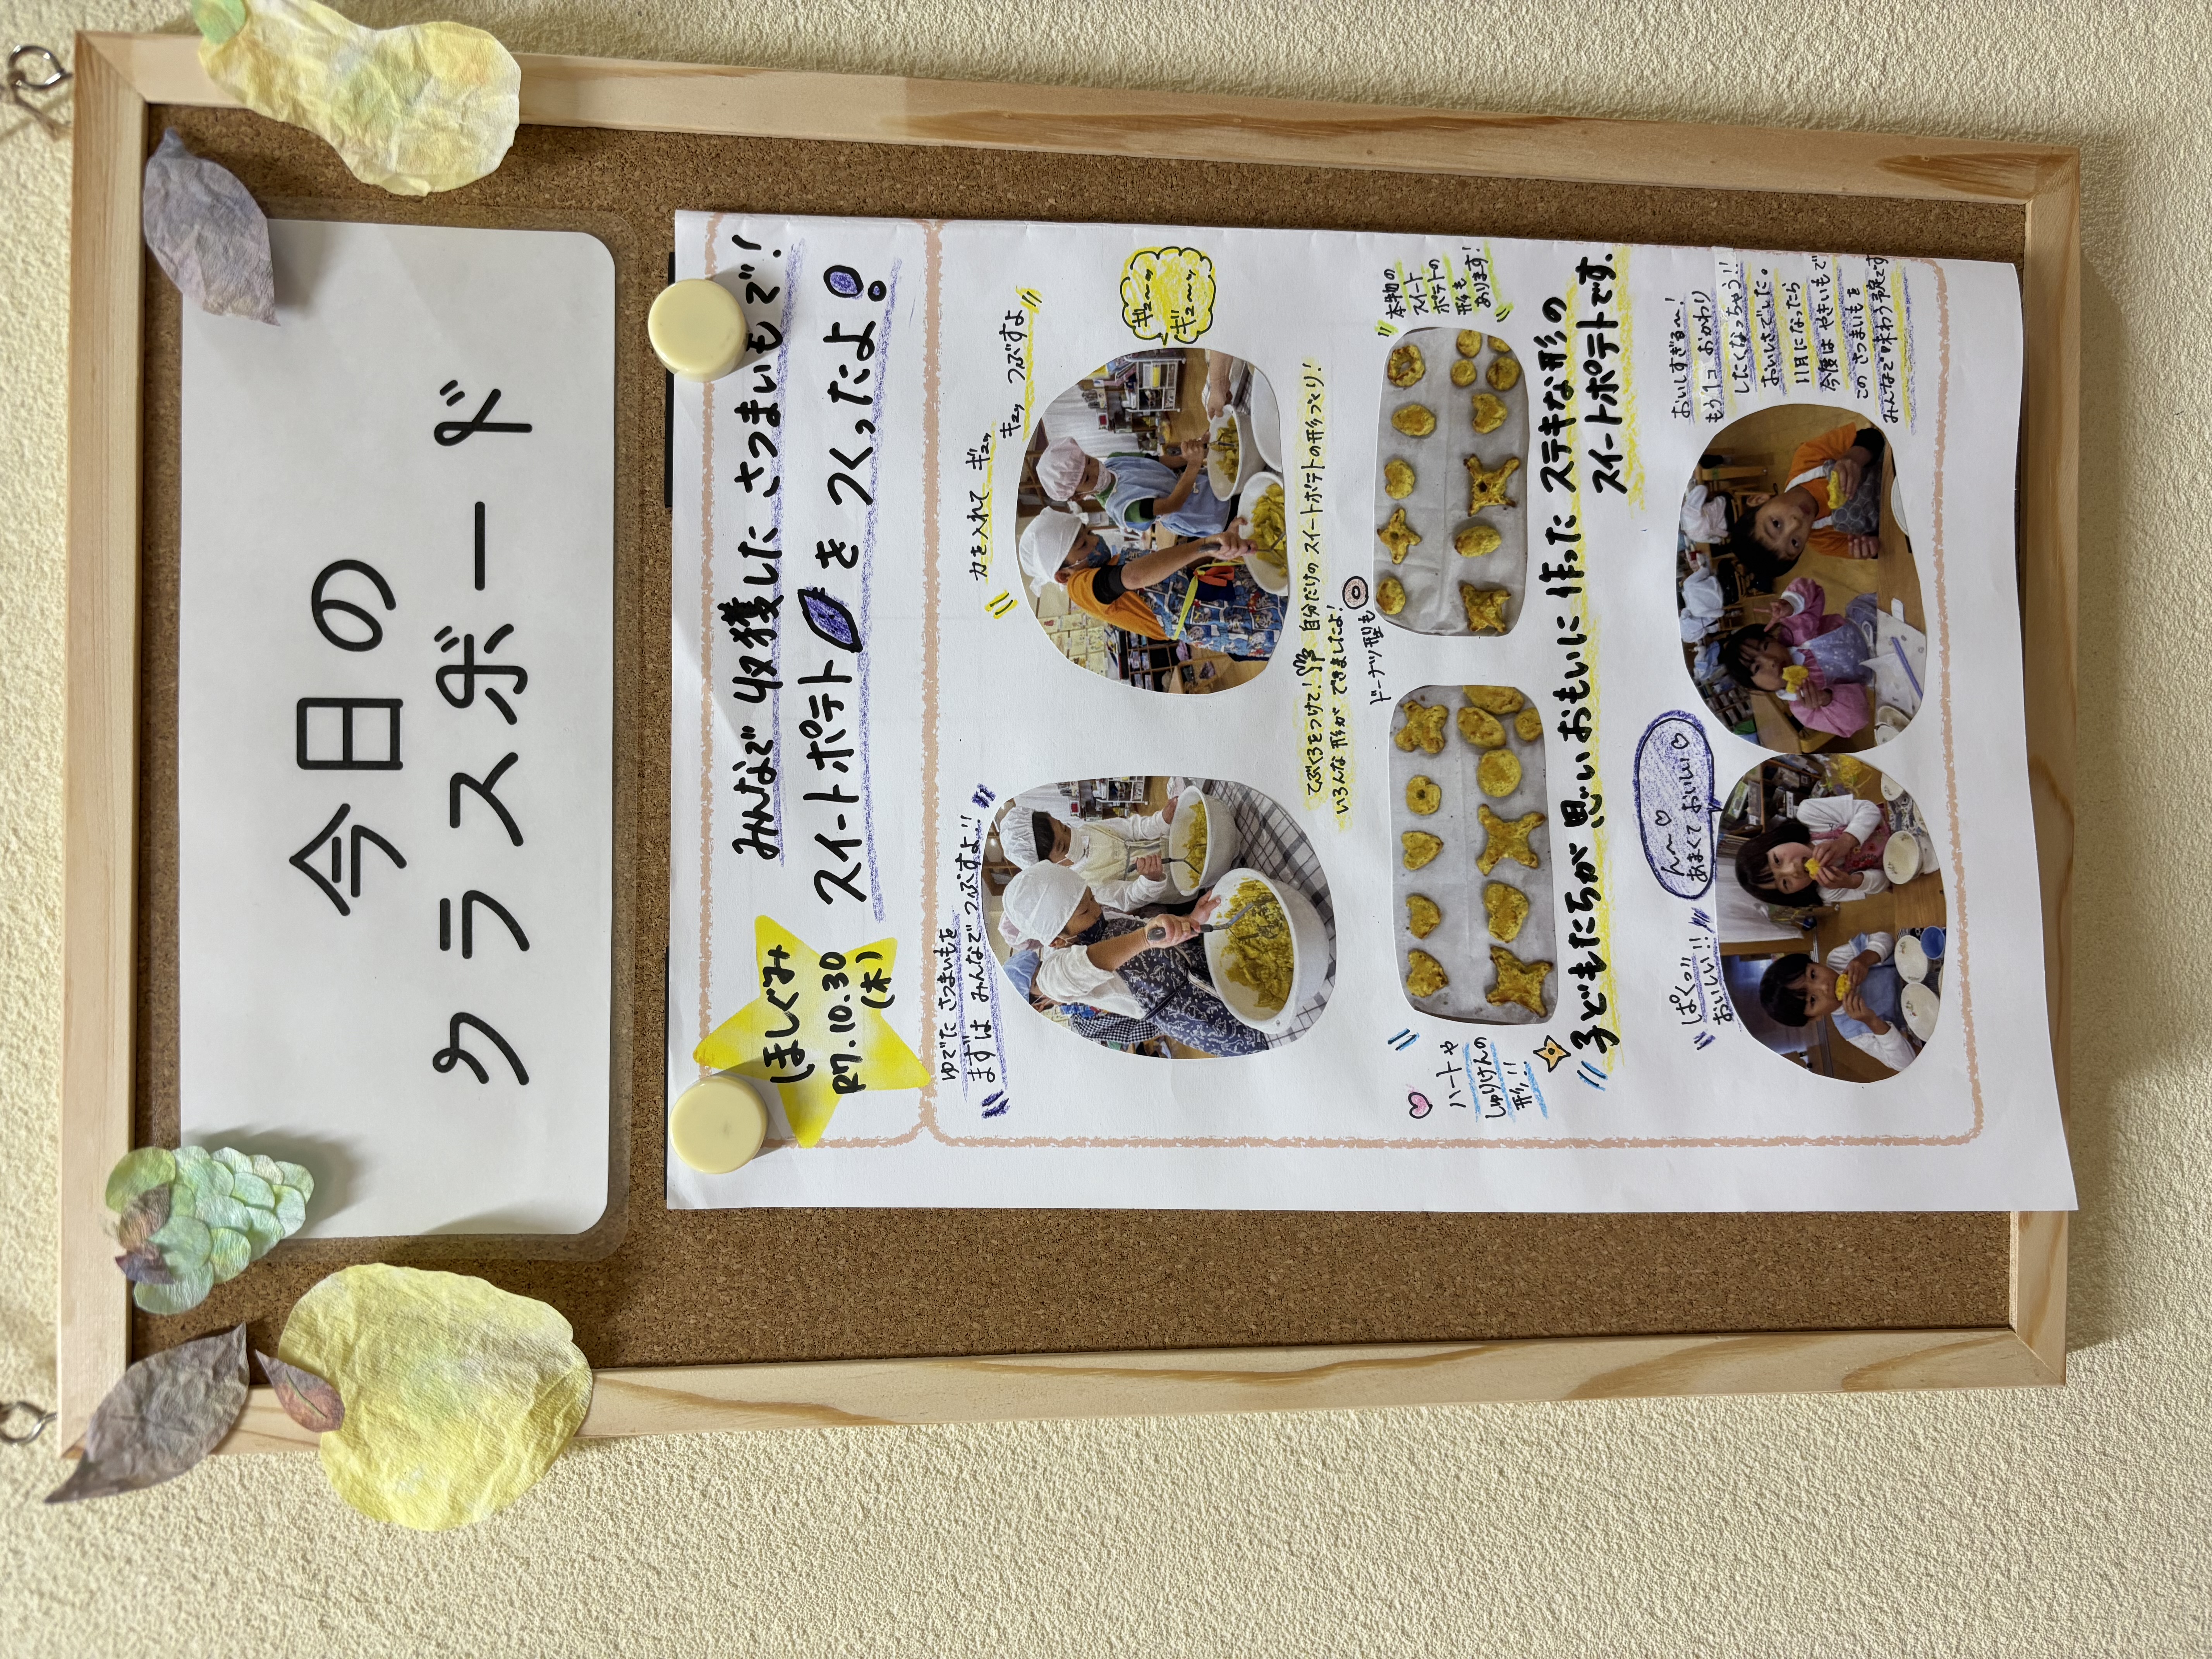 今日の
クラスボード
ほしぐみ
R7.10.30
(木)
みんなで収獲した さつまいもで!
スイートポテト を つくったよ!
ゆでた さつまいもを
まずは みんなで つぶすよ!!
力を入れて ギュッ
ギュッ つぶすよ
ギュ〜ッ
ギュ〜ッ
てぶくろをつけて! 自分だけの スイートポテトの形づくり!
いろんな 形が できましたよ!
ドーナツ型も
ハートや
しゅりけんの
形!!
本物の
スイート
ポテトの
形も
あります!
子どもたちが 思いおもいに 作った ステキな形の
スイートポテトです.
ぱくっ!!
おいしい!!
ん〜♡
あまくて おいしい♡
おいしすぎる〜!
もう1コ おかわり
したくなっちゃう!!
おいしさでした。
11月になったら
今度は やきいもで
この さつまいもを
みんなで味わう予定です